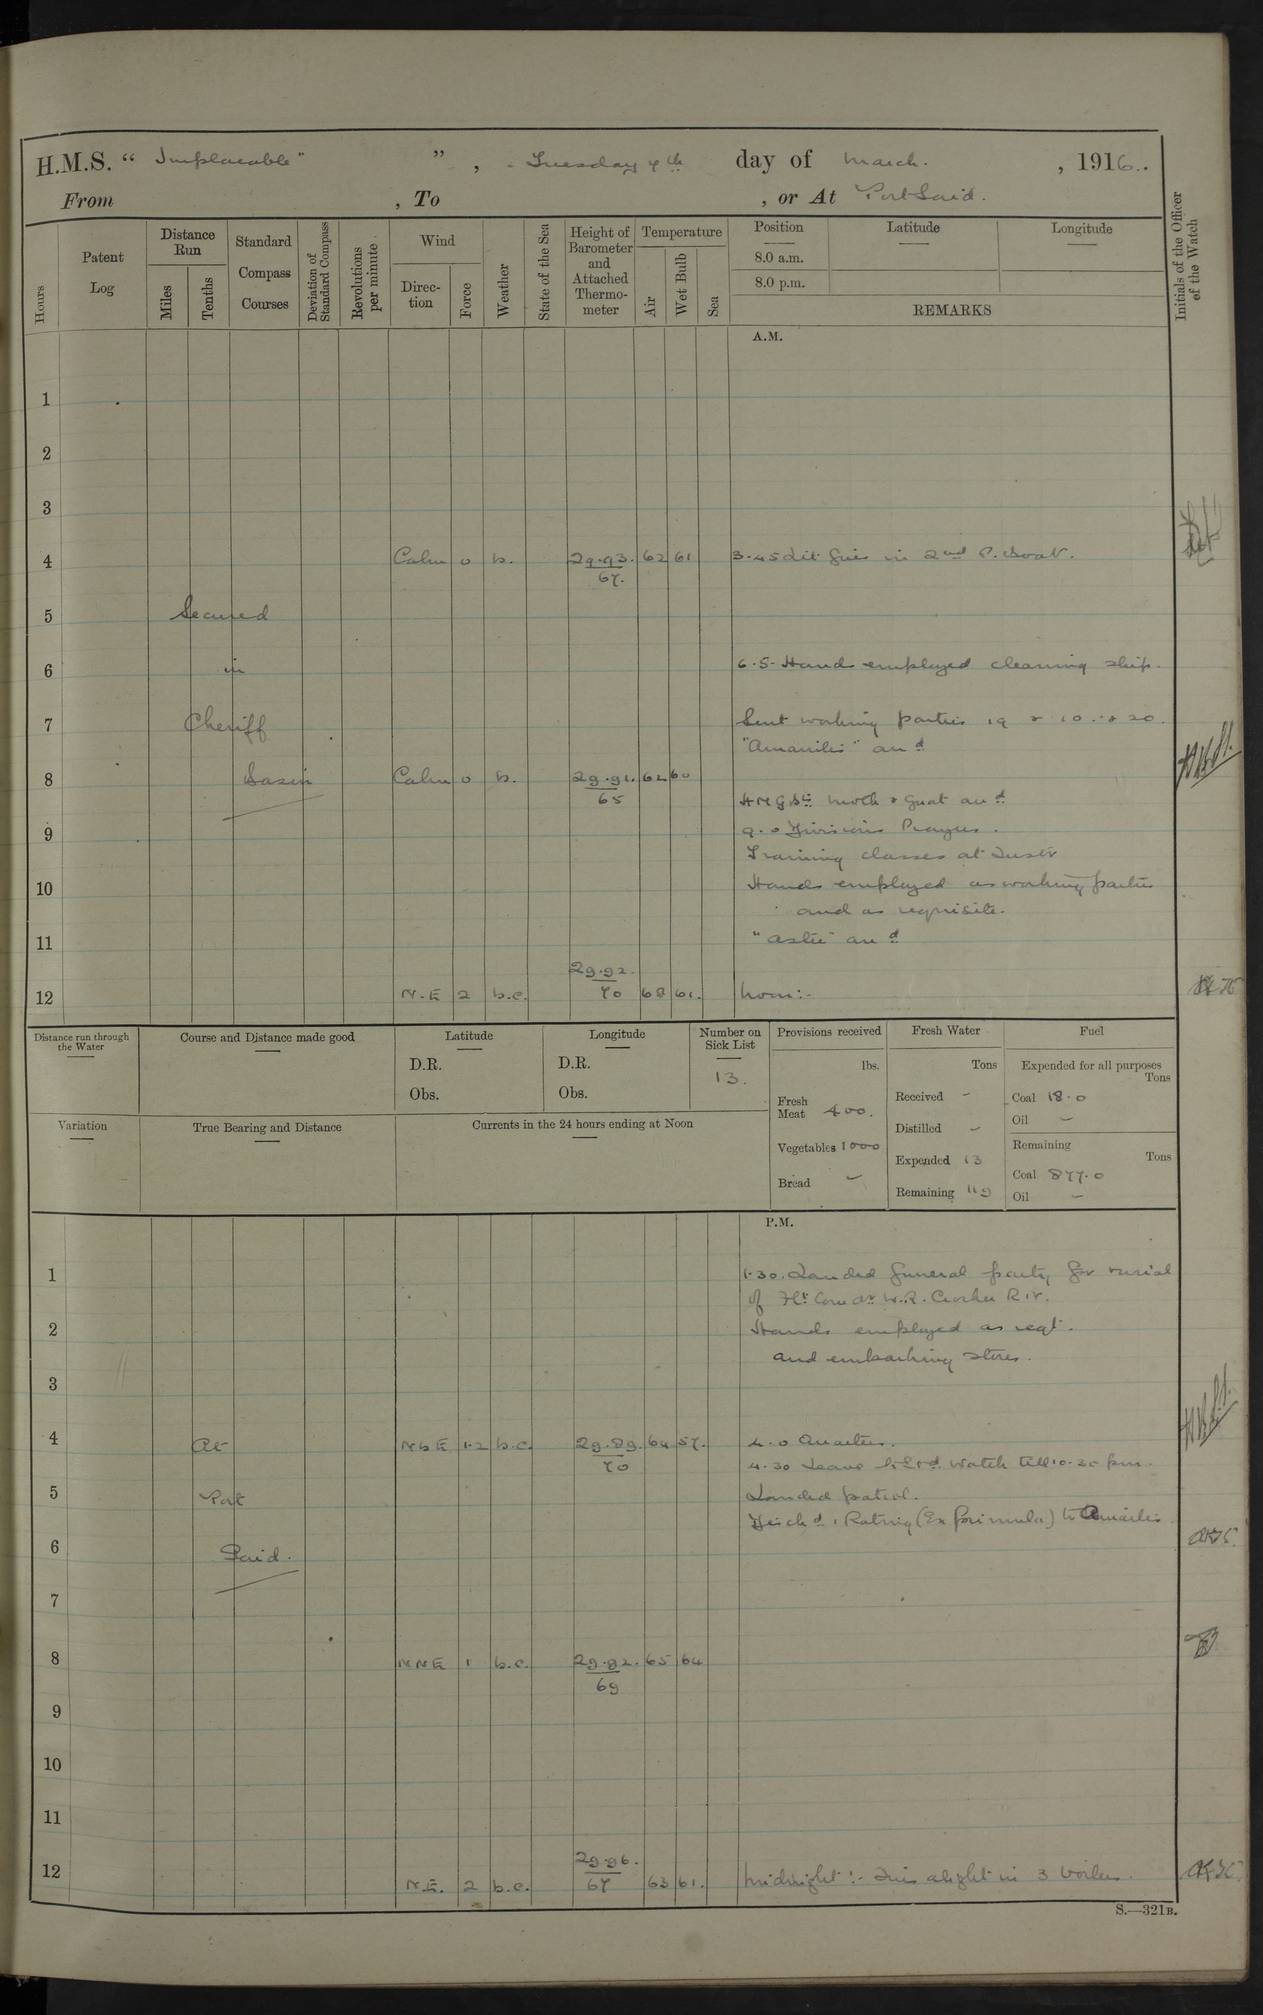 H.M.S. “ Implacable" ” , Tuesday 7th day of March. , 1916.
From , To , or At Port Said.
Hours
Patent Log
Distance Run
Miles
Tenths
Standard Compass Courses
Deviation of Standard Compass
Revolutions per minute
Wind
Direction
Force
Weather
State of the Sea
Height of Barometer and Attached Thermometer
Temperature
Air
Wet Bulb
Sea
Position
8.0 a.m.
8.0 p.m.
Latitude
Longitude
REMARKS
Initials of the Officer of the Watch
A.M.
1
2
3
4 Calm 0 b. 29.93. 67. 62 61 3.45 Lit fires in 2nd P. Boat.
5 Secured
6 in 6.5. Hands employed cleaning ship.
7 Cheriff Sent working parties 19 & 10 & 20.
"Amarilis" arrd
8 Basin Calm 0 b. 29.92. 65 62 60
H M G Bts Moth & Gnat arrd
9 9.0 Divisions Prayers.
Training classes at Instr
10 Hands employed as working parties
and as requisite.
11 "Aster" arrd
12 N.E 2 b.c. 29.92. 70 68 61. Noon:-
Distance run through the Water
Course and Distance made good
Latitude
D.R.
Obs.
Longitude
D.R.
Obs.
Number on Sick List
13.
Provisions received
lbs.
Fresh Meat 400.
Vegetables 1000
Bread –
Fresh Water
Tons
Received –
Distilled –
Expended 13
Remaining 119
Fuel
Expended for all purposes
Tons
Coal 18.0
Oil –
Remaining
Tons
Coal 877.0
Oil –
Variation
True Bearing and Distance
Currents in the 24 hours ending at Noon
P.M.
1 1.30. Landed funeral party for burial
of Flt Comdr W.R. Crocker R.N.
2 Hands employed as reqt.
and embarking stores.
3
4 At N b E 1.2 b.c. 29.89. 70 64 57. 4.0 Quarters.
4.30 Leave to watch till 10.30 pm.
5 Port Landed patrol.
Dischd 1 Rating (Ex Primula) to Amarilis
6 Said.
7
8 NNE 1 b.c. 29.92. 69 65 64
9
10
11
12 N.E. 2 b.c. 29.96. 67 63 61. Midnight:- Fires alight in 3 boilers.
S.—321B.